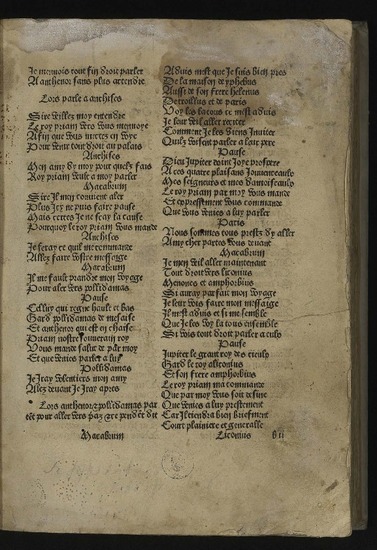 Je menuois tout fin droit parler
A anthenor sans plus attendre
Lors parle a anchises
Sire vueillez moy entendre
Le roy priam vers vous menuoye
Affin que vous mettez en voye
Pour venir tout droit au palais
Anchises
Men amy dy moy pour quelz fais
Roy priam veult a moy parler
Macabrum
Sire Il men conuient aler
Plus Icy ne puis faire pause
Mais certes Je ne scay la cause
Pourquoy le roy priam vous mande
Anchises
Je feray ce quil me commande
Allez faire vostre message
Macabrum
Il me fault prandre mon voyage
Pour aler vers pollidamas
Pause
Celluy qui regne hault et bas
Gard pollidamas de mesaise
Et anthenor qui est en chaise
Priam nostre souuerain roy
Vous mande salut de par moy
Et que venez parler a luy
Pollidamas
Je Iray volentiers mon amy
Alez deuant Je Iray apres
Lors anthenor et pollidamas par
tent pour aller vers
Macabrum
Aduis mest que Je suis bien pres
De la maison deyphebus
Aussi de son frere helenus
De troillus et de paris
Voy les la tous ce mest aduis
Je leur vueil aller reciter
Comment Je les viens Inuiter
Quilz voisent parler a leur pere
Pause
Dieu Jupiter doint Joye prospere
A ces quatre plaisans Jouuenceaulx
Mes seigneurs et mes damoiseaulx
Le roy priam par moy vous mande
Et expressement vous commande
Que vous venez a luy parler
Paris
Nous sommes tous prestz dy aller
Amy cher partez vous deuant
Macabrum
Je men vueil aller maintenant
Tout droit vers liconius
Menones et amphorbius
Si auray parfait mon voyage
Je leur vois faire mon message
Il mest aduis et si me semble
Que Je les voy la tous ensemble
Si vois tout droit parler a eulx
Pause
Jupiter le grant roy des cieulx
Gard le roy
Et son frere amphorbius
Le roy priam ma commande
Que par moy vous soit
Que venez a luy prestement
Car Il tiendra bien briefment
Court plainiere et generalle
Liconius b ii